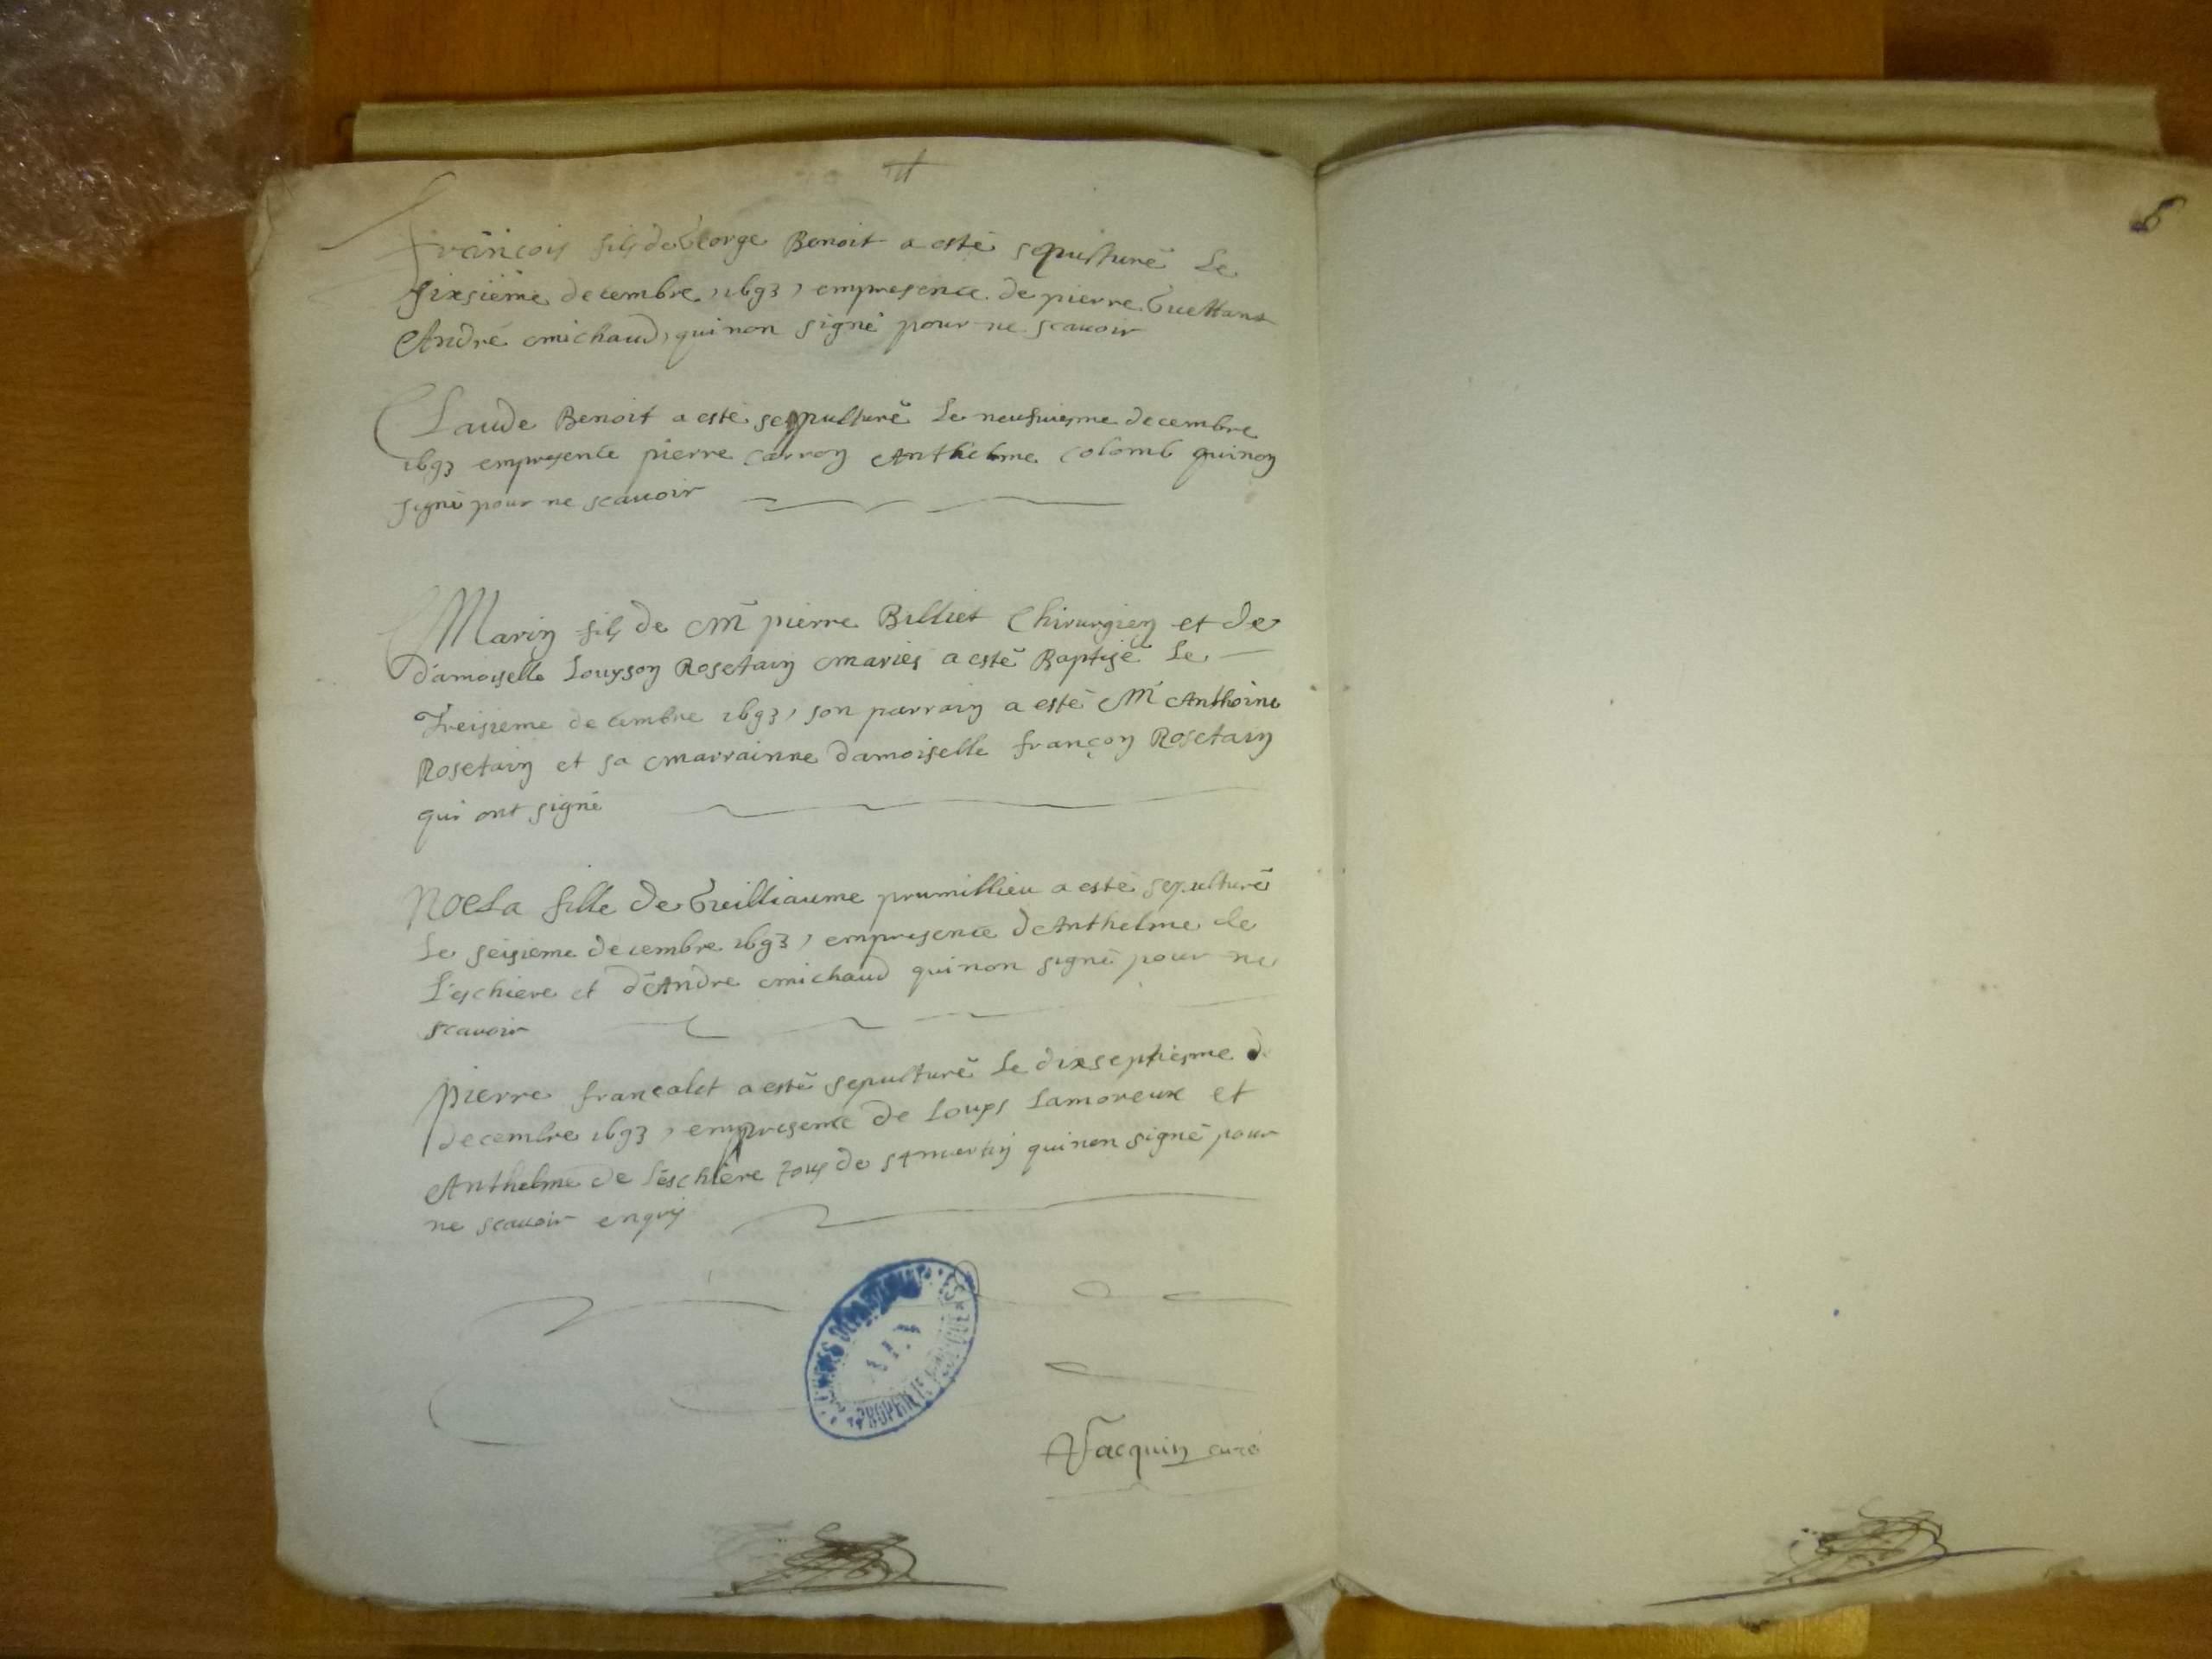 françois fils de George Benoit a esté sepulturé Le
sixsieme decembre 1693, empresence de pierre Guettant
André michaud, qui non signé pour ne scauoir
Claude Benoit a esté sepulturé Le neufuiesme decembre
1693 empresence pierre carron Anthelme colomb qui non
signé pour ne scauoir
Marin fils de Mr pierre Billiet Chirurgien et de
damoiselle Louyson Rosetain mariés a esté Baptisé Le
Treisieme decembre 1693, son parrain a esté Mr Anthoine
Rosetain et sa marrainne damoiselle françon Rosetain
qui ont signé
Noela fille de Guilliaume prumillieu a esté sepulturé
Le seisieme decembre 1693, empresence dAnthelme de
L'eschiere et d'Andre michaud qui non signé pour ne
scauoir
pierre francalet a esté sepulturé Le dixseptiesme de
decembre 1693, empresence de Louys Lamoreux et
Anthelme de L'eschiere tous de st martin qui non signé pour
ne scauoir
Jacquin curé
AIN
6